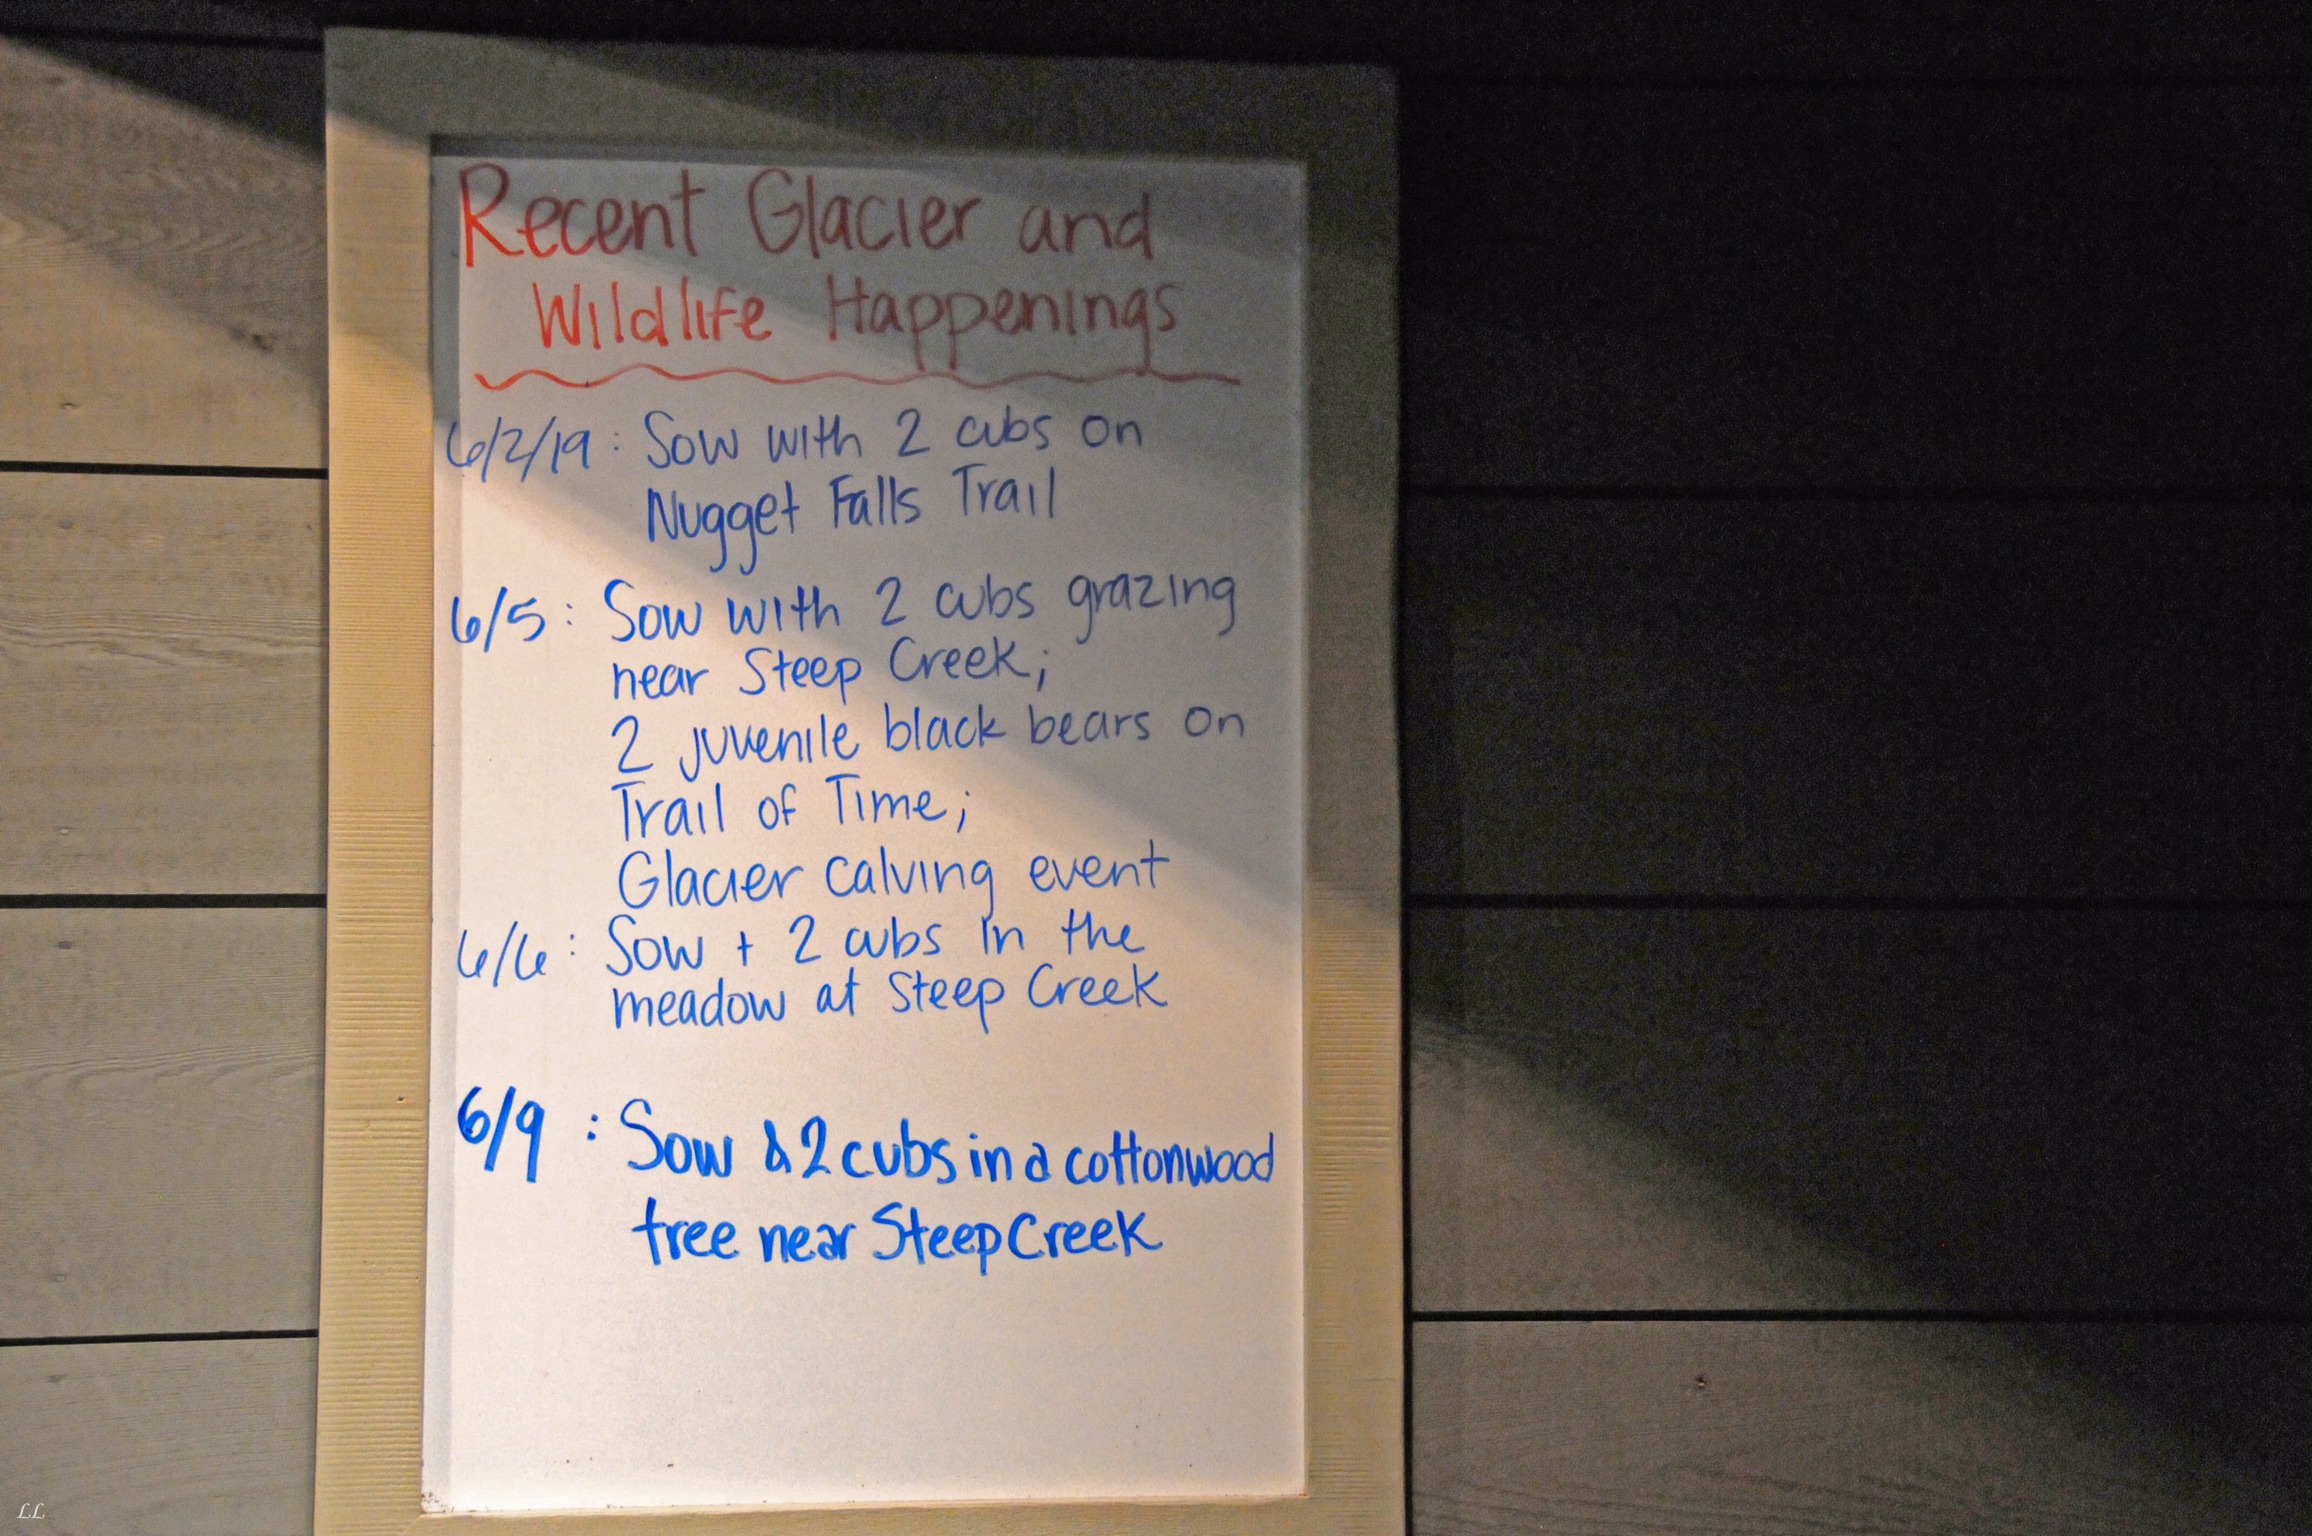 Recent Glacier and
Wildlife Happenings
6/2/19: Sow with 2 cubs on
Nugget Falls Trail
6/5: Sow with 2 cubs grazing
near Steep Creek;
2 juvenile black bears on
Trail of Time;
Glacier calving event
6/6: Sow + 2 cubs in the
meadow at Steep Creek
6/9: Sow & 2 cubs in a cottonwood
tree near Steep Creek
LL